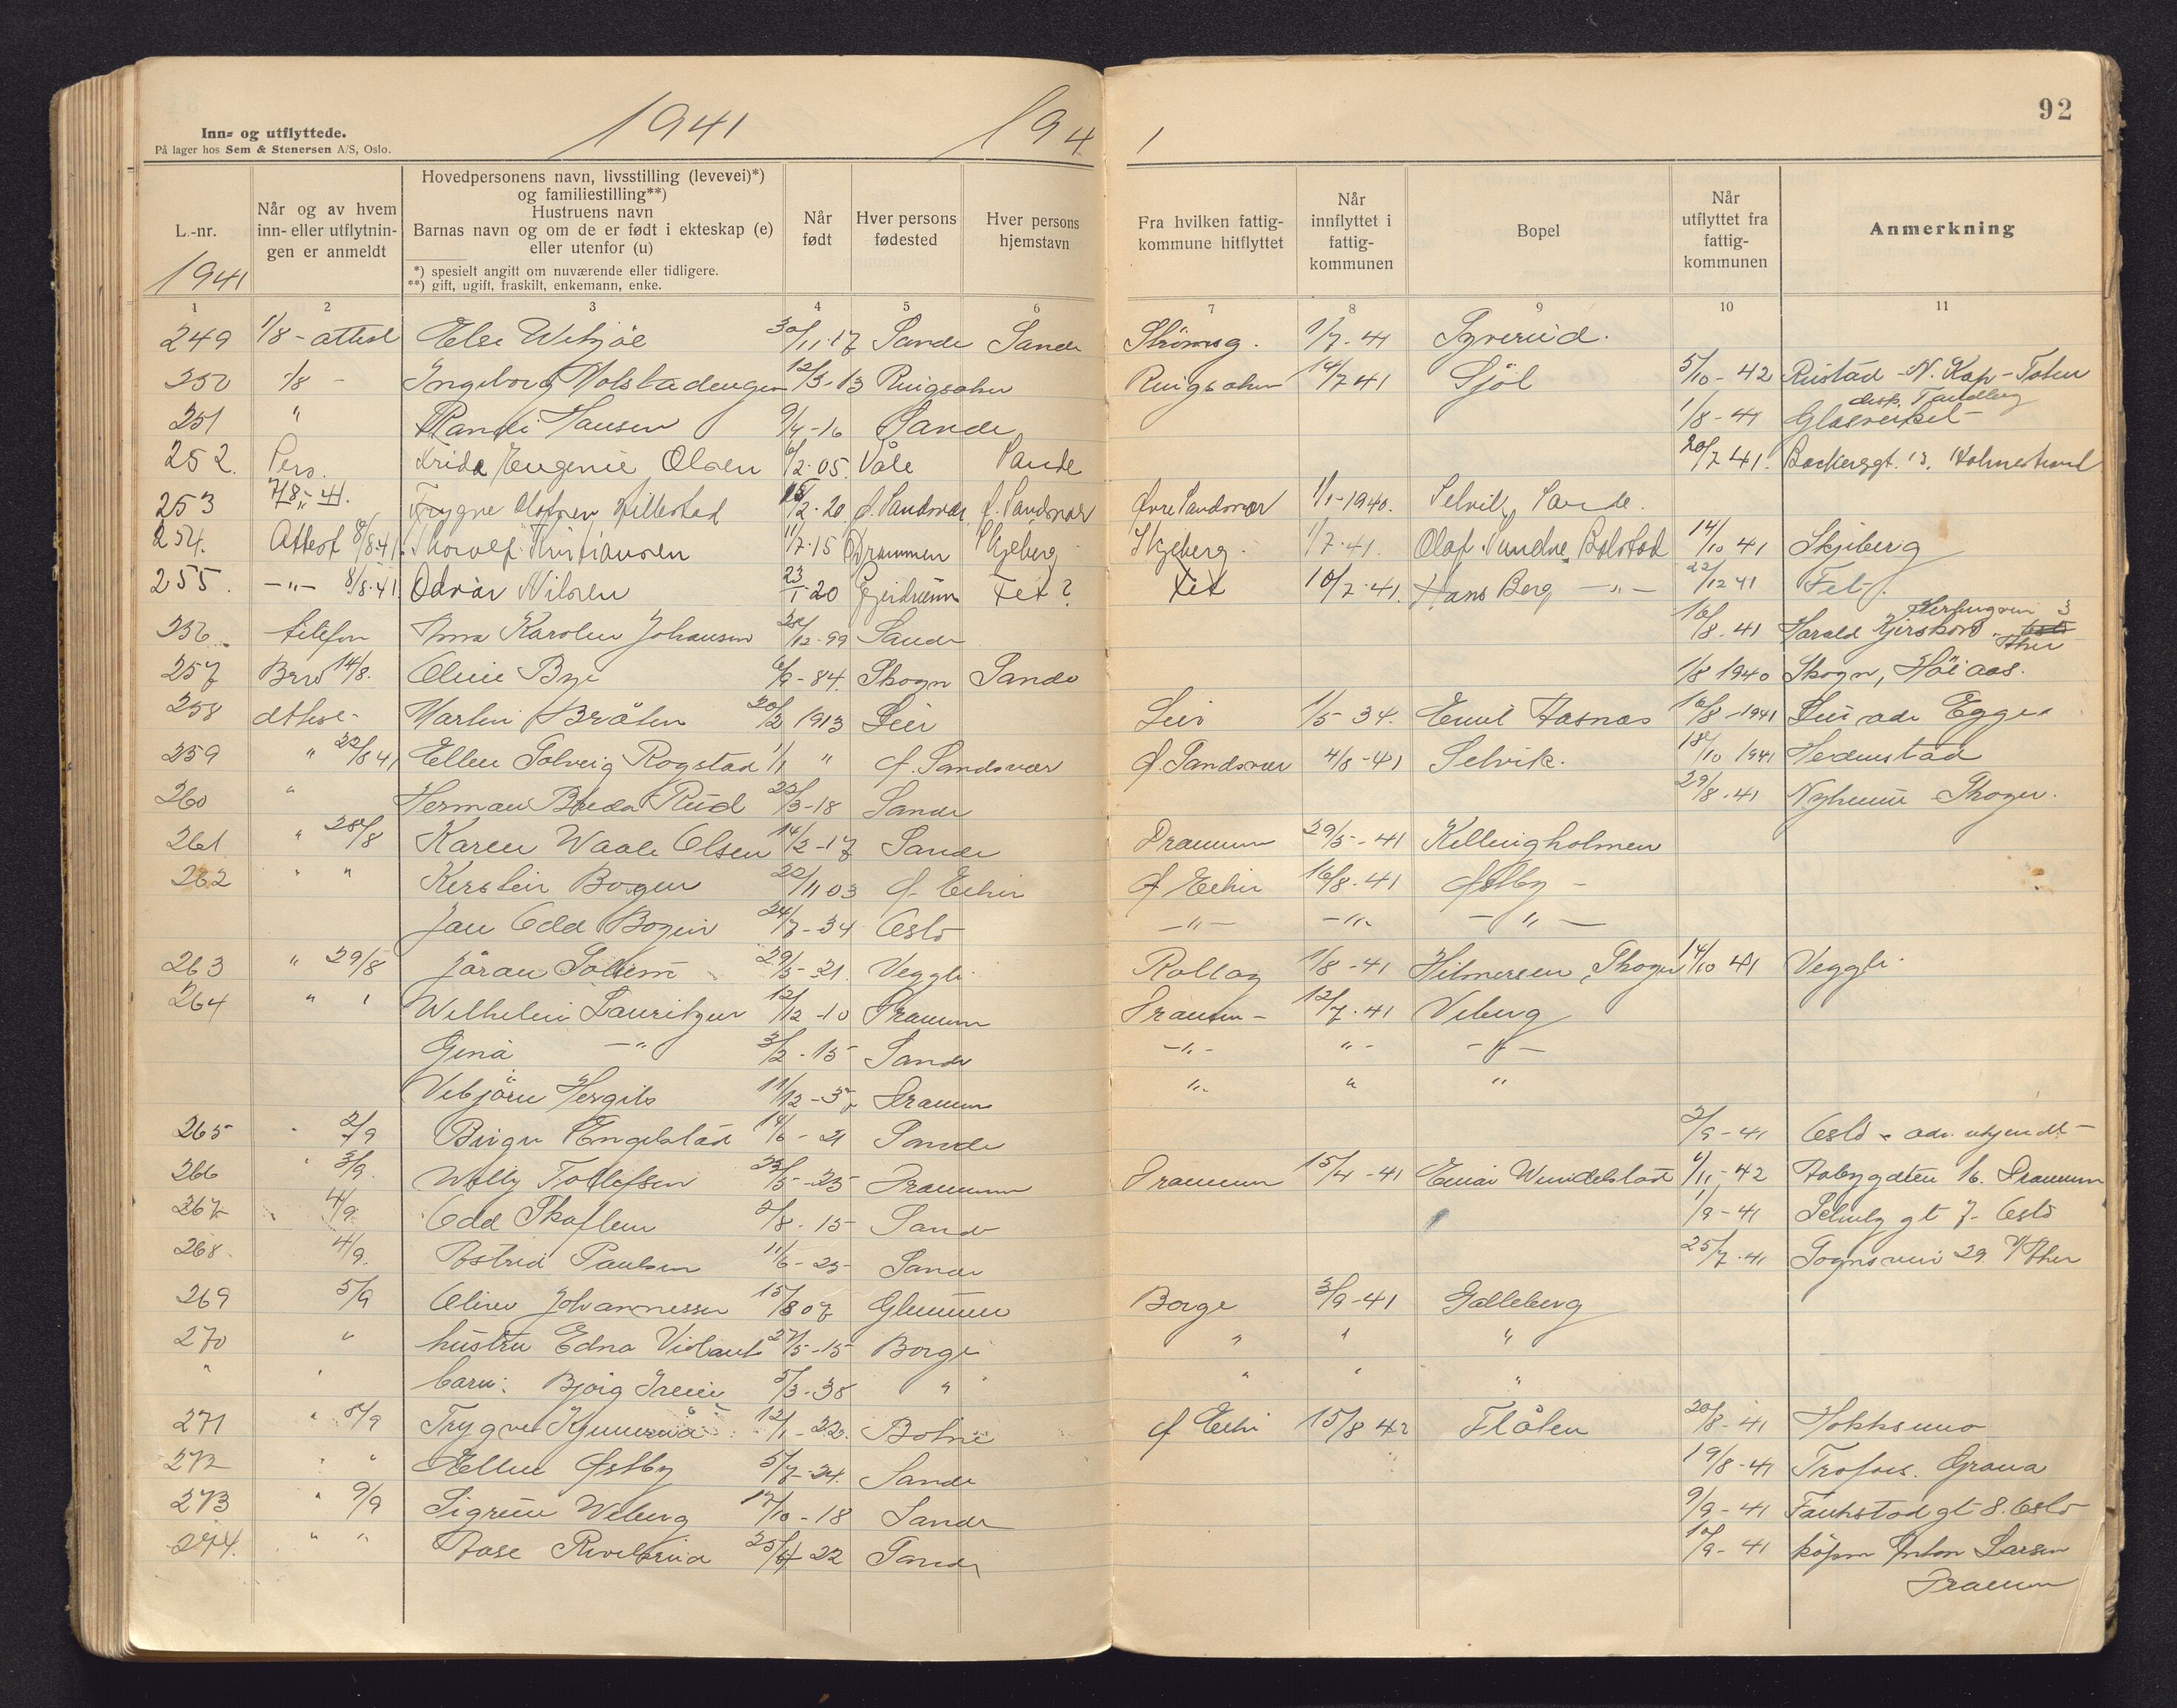 92
Inn- og utflyttede.
På lager hos Sem & Stenersen A/S, Oslo.
1941 1941
L.-nr.
1941
Når og av hvem inn- eller utflytningen er anmeldt
Hovedpersonens navn, livsstilling (levevei)*)
og familiestilling**)
Hustruens navn
Barnas navn og om de er født i ekteskap (e)
eller utenfor (u)
*) spesielt angitt om nuværende eller tidligere.
**) gift, ugift, fraskilt, enkemann, enke.
Når født
Hver persons fødested
Hver persons hjemstavn
Fra hvilken fattigkommune hitflyttet
Når innflyttet i fattigkommunen
Bopel
Når utflyttet fra fattigkommunen
Anmerkning
1 2 3 4 5 6 7 8 9 10 11
249 1/8 - attest Else 30/11-17 Sande Sande Strømsg. 1/7-41
250 1/8 - Ingeborg 12/3-13 Ringsaker Ringsaker 14/7 41 5/10-42 Rustad - N. Kap - Toten
251 " Randi Hansen 9/4-16 Sande 1/8-41 Glasverket
252. Pers. Frida Eugenie Olsen 6/2-05. Våle Sande 20/7 41. Backersgt. 13. Holmestrand
253 7/8-41. Trygve Olafsen Hillestad 2-20 ø. Sandsvær ø. Sandsvær Øvre Sandsvær 1/1-1940. Selvik, Sande.
254. Attest 8/8-41. Thorolf Kristiansen 11/7-15 Drammen Skjeberg Skjeberg. 1/7-41. Olaf Sundne Bolstad 14/10 41 Skjeberg
255. -"- 8/8-41. Odvar Nilsen 23/1-20 Fet? Fet 10/7-41. Hans Berg -"- 22/12 41 Fet.
256. telefon Anna Karoline Johansen 28/12-99 Sande 16/8-41 Harald
257 Brev 14/8. Oline Bye 6/9-84. Skogn Sande 1/8 1940 Skogn, Höiaas.
258 attest- Martin Bråten 20/2 1913 Lier Lier 1/5-34. Emil Aasnæs 16/8-1941 Lier adr Egge
259 " 22/8 41 Ellen Solveig Rogstad 1/1 " ø. Sandsvær ø. Sandsvær 4/8-41 Selvik. 18/10 1941 Hedenstad
260 " Herman Breda Rud 22/3-18 Sande 29/8-41 Nyheim Skoger.
261 " 28/8 Karen Waale Olsen 14/2-17 Sande Drammen 29/5-41 Killingholmen
262 " " Kerstin Bogen 22/11 03 ø. Eiker ø Eiker 16/8-41 Østby -
Jan Odd Bogen 24/7-34 Oslo -"- -"- -"-
263 " 29/8 Jöran Solem 29/5-21. Veggli Rollag 1/8-41 Hilmersen, Skoger 14/10 41 Veggli
264 " " Wilhelm Lauritzen 12/12-10 Drammen Drammen- 12/7-41 Viberg
Gina -"- 3/2-15 Sande -"- "- -"-
Vebjörn Hergils 11/12-3 Drammen "- " "
265 " 2/9 Birger Engelstad 14/6-21 Sande 3/9-41 Oslo - adr. ukjendt-
266 " 3/9. Willy Tollefsen 23/5-25 Drammen Drammen 15/4-41 Einar Windelstad 1/11-42 Aabygdten 16. Drammen
267 " 4/9 Odd Skaflem 2/8-15 Sande 1/9-41 Schulz gt 7- Oslo
268. 4/9. Astrid Paulsen 11/6-25 Sande 25/7-41 Sognsvei 29. V/Aker
269 5/9 Oliver Johannessen 15/8 07 Glemmen Borge 3/9-41 Galleberg
270 " hustru Edna Violant 27/5-15 Borge " " "
" ' barn: Bjørg Irene 5/3-38 " " " "
271 " 8/9 Trygve 12/1-22. Botne ø Eiker 15/8 42 Flåten 20/8-41 Hokksund
272 " " Ellen Østby 5/7-24. Sande 19/8-41 Trofors. Grana
273 " 9/9 Sigrun Weberg 17/10-18 Sande 9/9-41 Fauchstad gt 8. Oslo
274. " " Aase 25/4 22 Sande 10/9-41 kjøpm Anton Larsen
Drammen